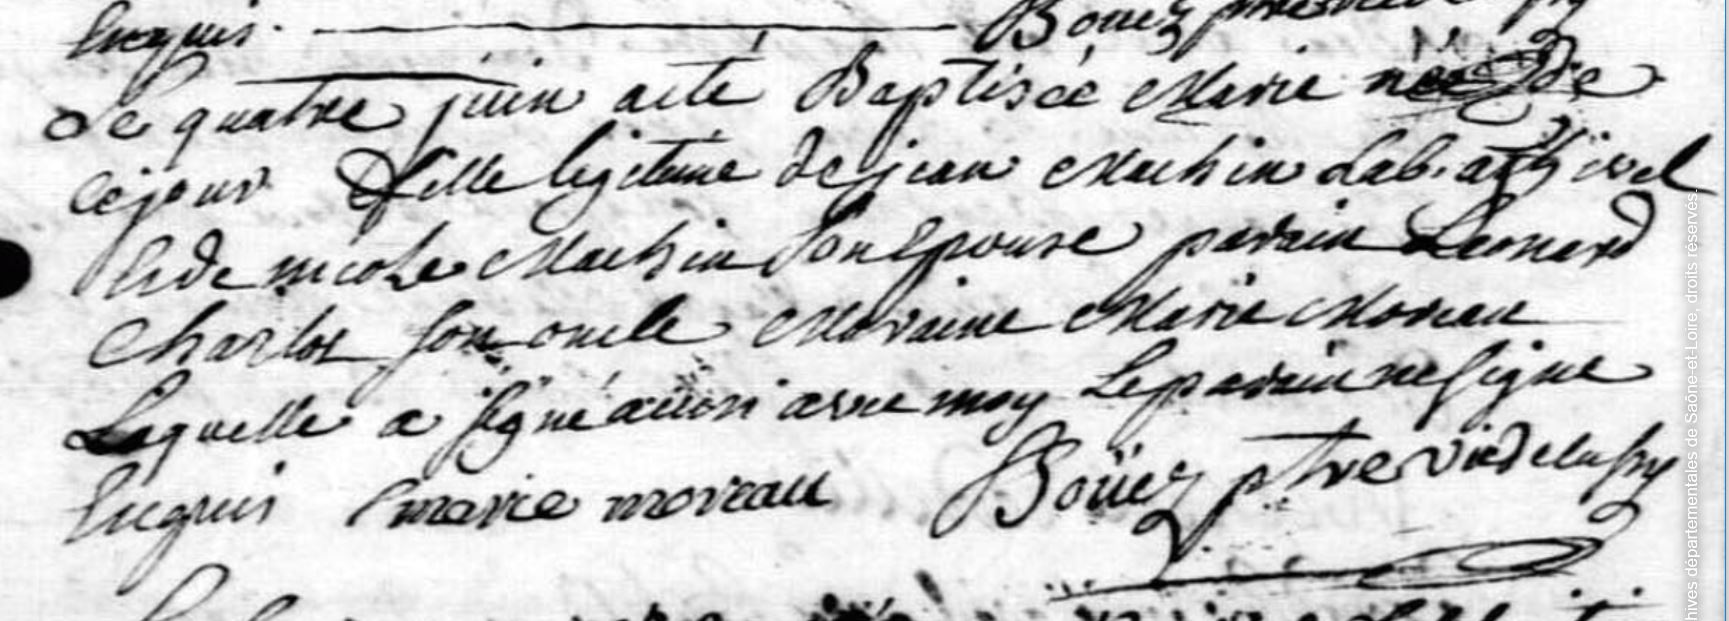 Enquis. Boüez ptre
Le quatre juin a eté Baptisée Marie née de
ce jour fille legitime de jean Machin Lab. a
et de nicole Machin son Epouse parain Leonard
Charlot son oncle Maraine Marie Moreau
Laquelle a signé avec moy Le parain ne signe
Enquis marie moreau Boüez ptre vic de
hives départementales de Saône-et-Loire, droits réservés.